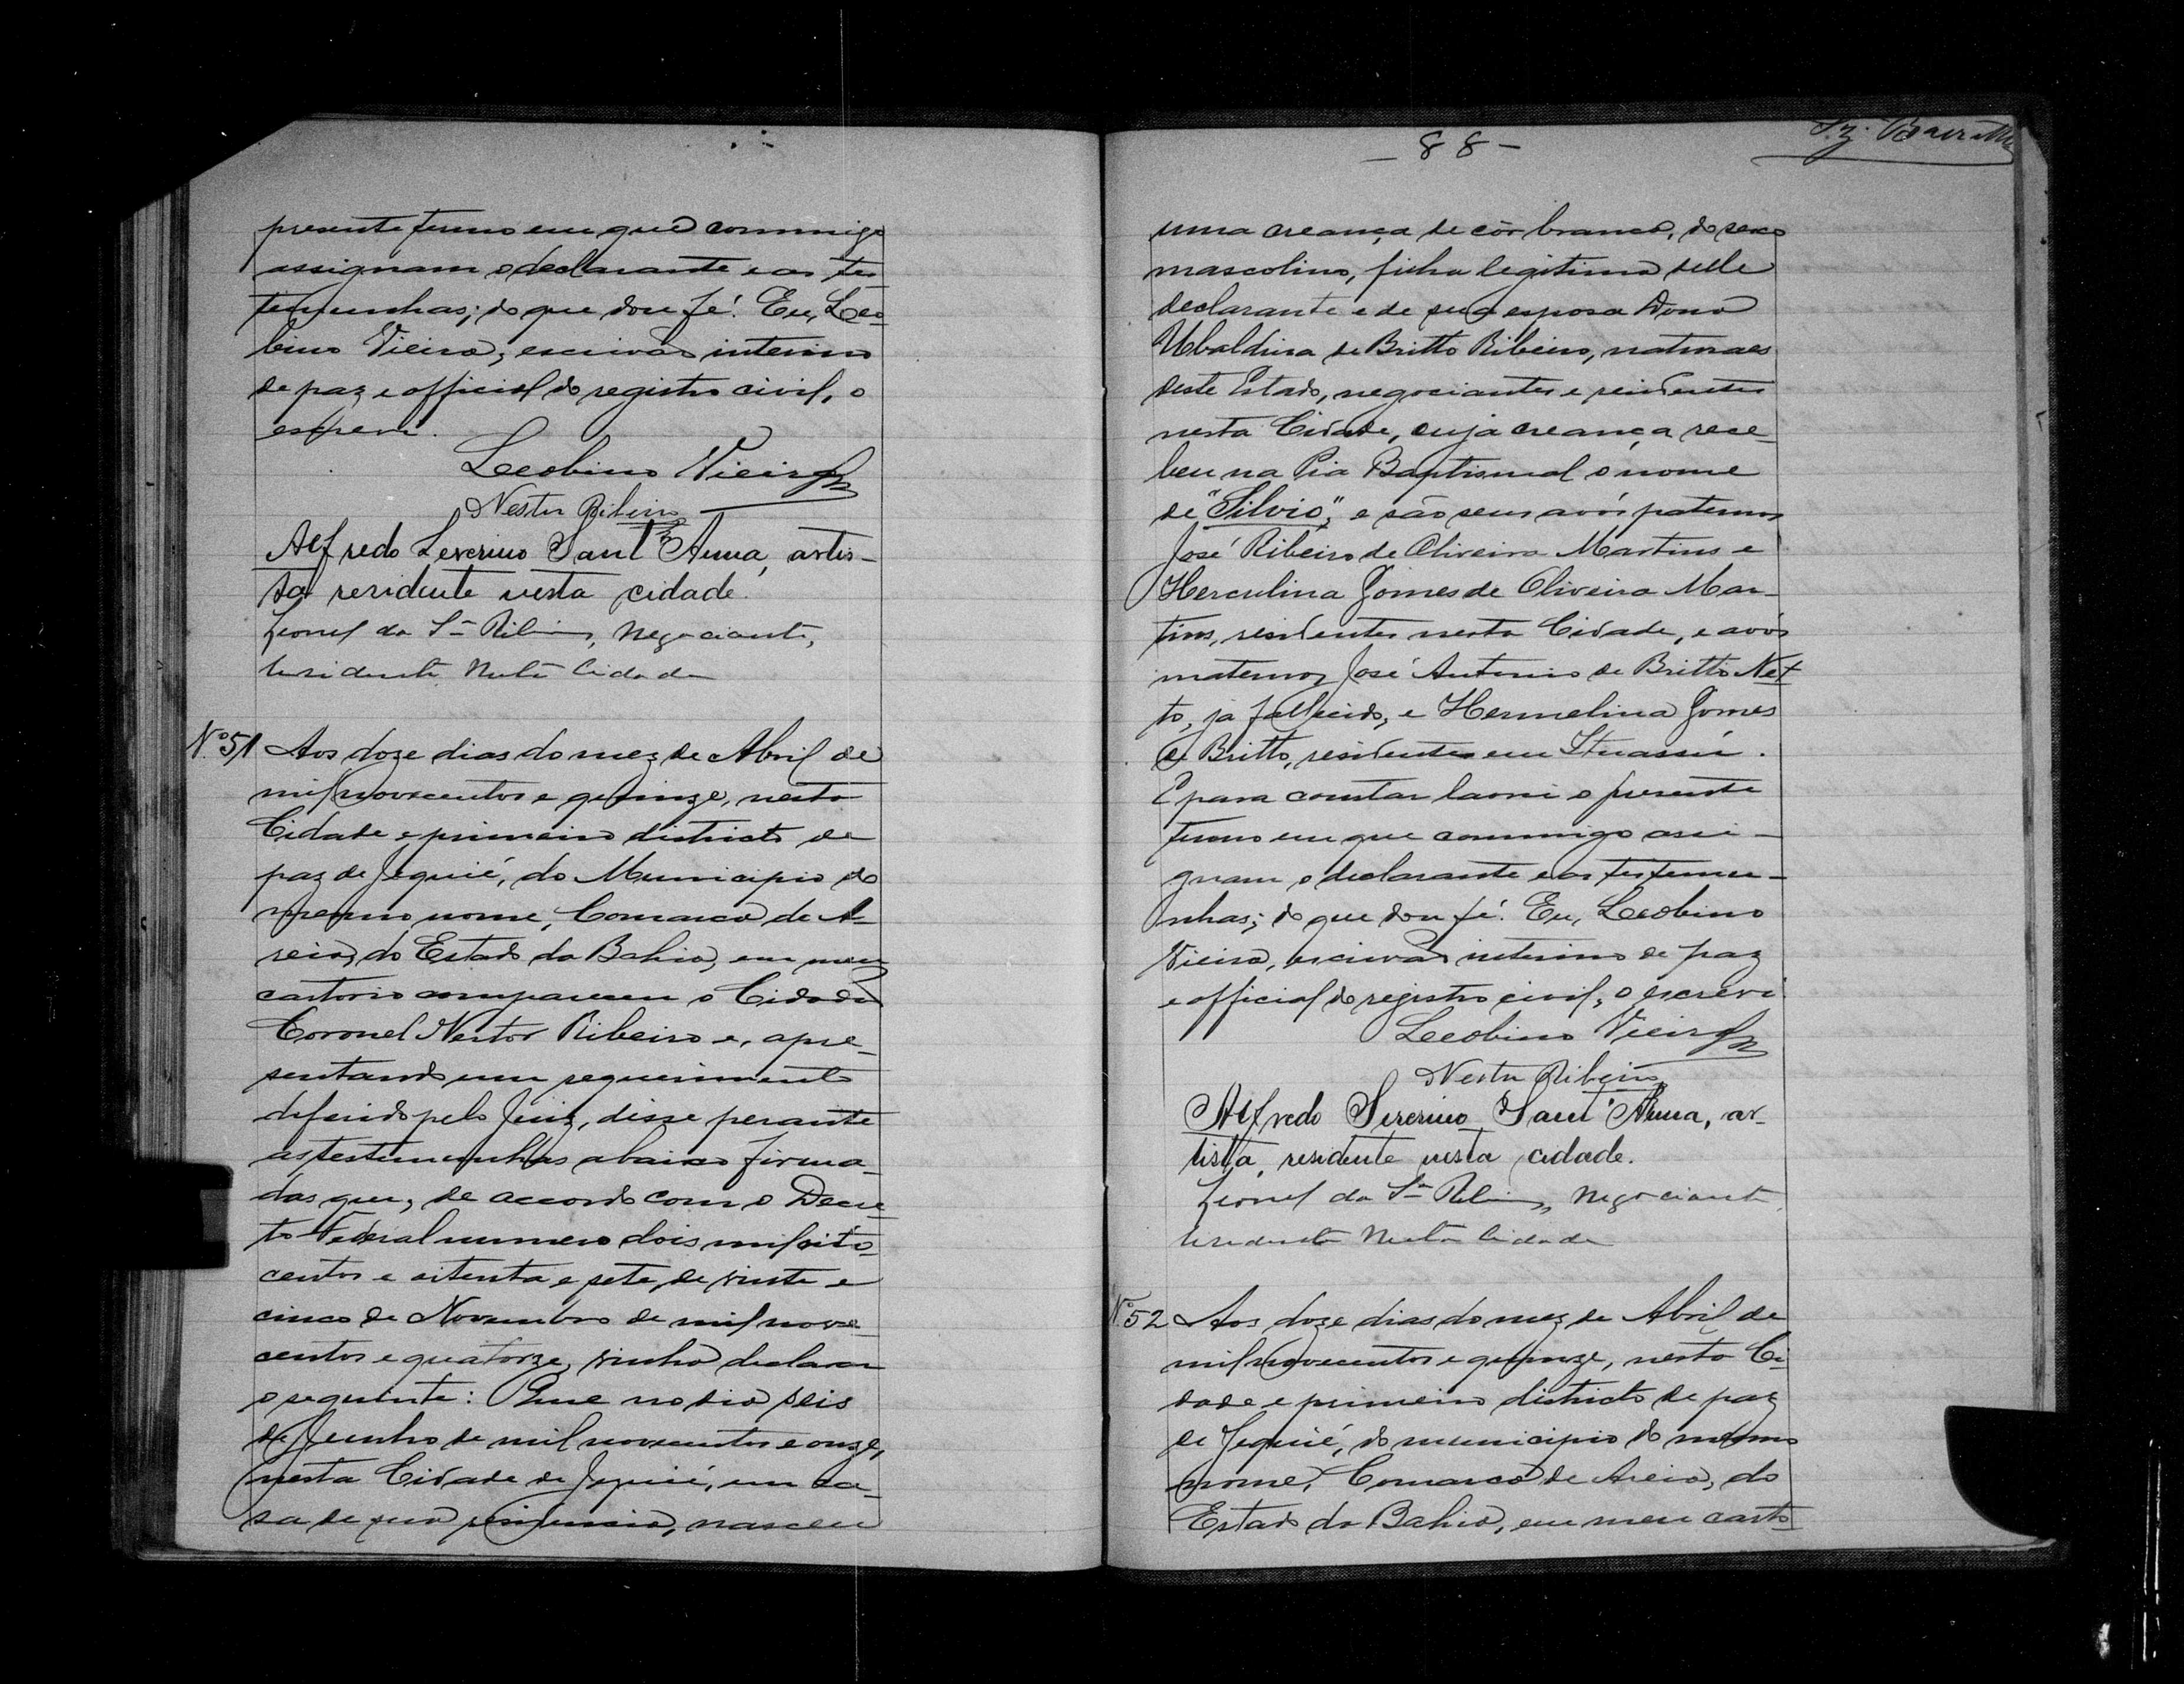 presente termo em que commigo
assignam o declarante e as tes
temunhas; do que dou fé. Eu, Leo-
bino Vieira, escrivão interino
de paz e official do registro civil, o
escrevi.
Leobino Vieira
Nestor Ribeiro
Alfredo Severino Sant'Anna, artis-
ta residente nesta cidade.
Leonel da Sª Ribeiro, negociante,
residente nesta cidade
Nº 51 Aos doze dias do mez de Abril de
mil novecentos e quinze, nesta
Cidade e primeiro districto de
paz de Jequié, do Municipio do
mesmo nome, Comarca de A-
reia, do Estado da Bahia, em meu
cartorio compareceu o Cidadão
Coronel Nestor Ribeiro e, apre-
sentando um requerimento
deferido pelo Juiz, disse perante
as testemunhas abaixo firma-
das que, de accordo com o Decre-
to Federal numero dois mil oito-
centos e oitenta e sete, de vinte e
cinco de Novembro de mil nove-
centos e quatorze, vinha declarar
o seguinte: Que no dia seis
de Junho de mil novecentos e onze,
nesta Cidade de Jequié, em ca-
sa de sua residencia, nasceu
- 88 -
uma creança de côr branca, do sexo
mascolino, filha legitima delle
declarante e de sua esposa Dona
Ubaldina de Britto Ribeiro, naturaes
deste Estado, negociantes e residentes
nesta Cidade, cuja creança rece-
beu na Pia Baptismal o nome
de "Silvio", e são seus avós paternos
José Ribeiro de Oliveira Martins e
Herculina Gomes de Oliveira Mar-
tins, residentes nesta Cidade, e avós
maternos José Antonio de Britto Net
to, já fallecido, e Hermelina Gomes
de Britto, residentes em Ituassú.
E para constar lavrei o presente
termo em que commigo assi-
gnam o declarante e as testemu-
nhas; do que dou fé. Eu, Leobino
Vieira, escrivão interino de paz
e official do registro civil, o escrevi
Leobino Vieira
Nestor Ribeiro
Alfredo Severino Sant'Anna, ar-
tista, residente nesta cidade.
Leonel da Sª Ribeiro, negociante
residente nesta cidade
Nº 52 Aos doze dias do mez de Abril de
mil novecentos e quinze, nesta Ci-
dade e primeiro districto de paz
de Jequié, do municipio do mesmo
nome, Comarca de Areia, do
Estado da Bahia, em meu carto-